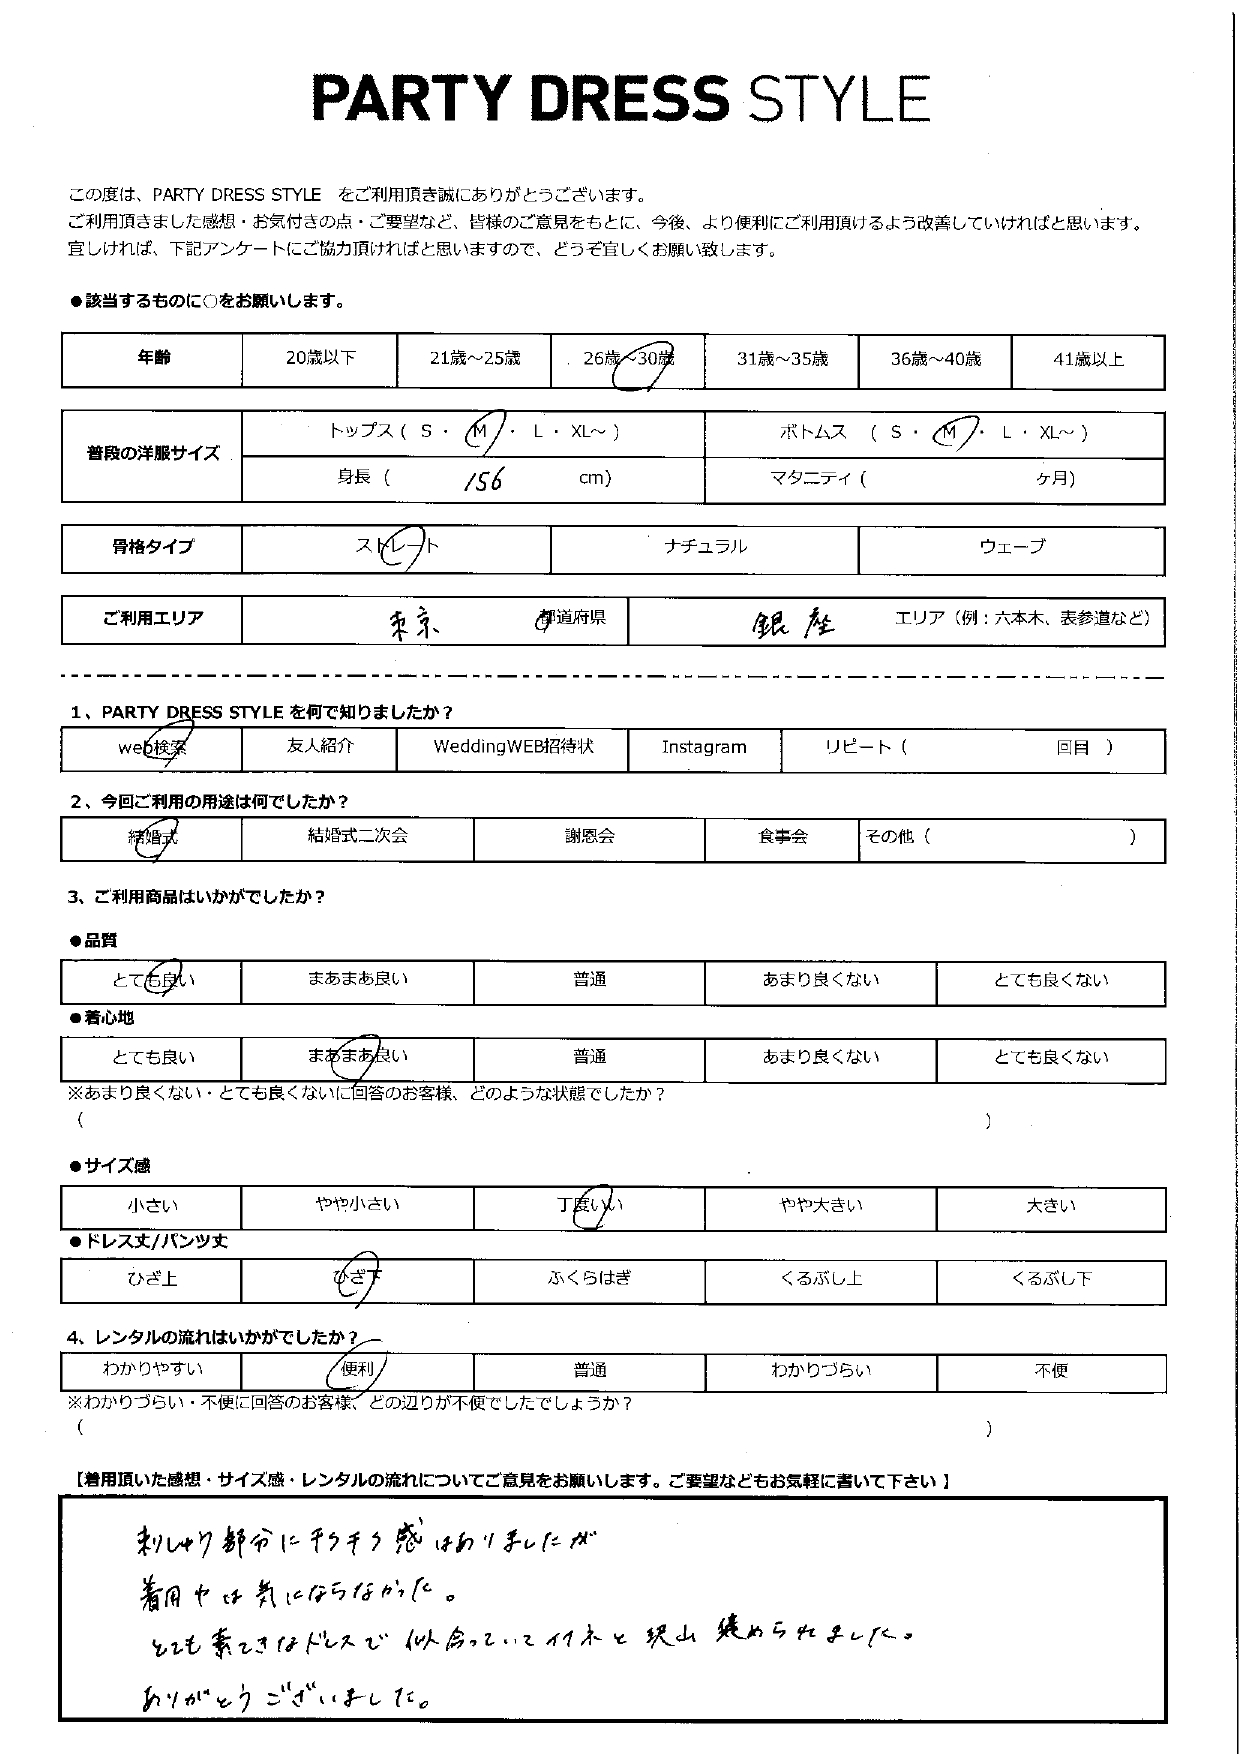 PARTY DRESS STYLE
この度は、PARTY DRESS STYLE をご利用頂き誠にありがとうございます。
ご利用頂きました感想・お気付きの点・ご要望など、皆様のご意見をもとに、今後、より便利にご利用頂けるよう改善していければと思います。
宜しければ、下記アンケートにご協力頂ければと思いますので、どうぞ宜しくお願い致します。
●該当するものに○をお願いします。
年齢 20歳以下 21歳～25歳 26歳～30歳 31歳～35歳 36歳～40歳 41歳以上
普段の洋服サイズ トップス ( S ・ M ・ L ・ XL～ ) ボトムス ( S ・ M ・ L ・ XL～ )
身長 ( 156 cm) マタニティ ( ヶ月)
骨格タイプ ストレート ナチュラル ウェーブ
ご利用エリア 東京 都道府県 銀座 エリア（例：六本木、表参道など）
1、PARTY DRESS STYLE を何で知りましたか？
web検索 友人紹介 WeddingWEB招待状 Instagram リピート ( 回目 )
2、今回ご利用の用途は何でしたか？
結婚式 結婚式二次会 謝恩会 食事会 その他 ( )
3、ご利用商品はいかがでしたか？
●品質
とても良い まあまあ良い 普通 あまり良くない とても良くない
●着心地
とても良い まあまあ良い 普通 あまり良くない とても良くない
※あまり良くない・とても良くないに回答のお客様、どのような状態でしたか？
( )
●サイズ感
小さい やや小さい 丁度いい やや大きい 大きい
●ドレス丈/パンツ丈
ひざ上 ひざ下 ふくらはぎ くるぶし上 くるぶし下
4、レンタルの流れはいかがでしたか？
わかりやすい 便利 普通 わかりづらい 不便
※わかりづらい・不便に回答のお客様、どの辺りが不便でしたでしょうか？
( )
【着用頂いた感想・サイズ感・レンタルの流れについてご意見をお願いします。ご要望などもお気軽に書いて下さい 】
刺しゅう部分にチクチク感はありましたが
着用中は気にならなかった。
とても素てきなドレスで 似合っていてイイネと沢山 褒められました。
ありがとうございました。